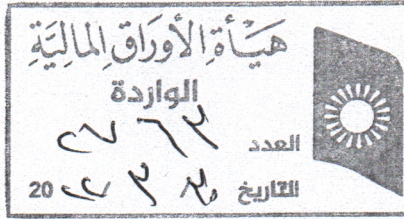 هَيْأَةِ الأَوْرَاقِ المَالِيَّةِ
الواردة
العدد ٢٧٦٣
التاريخ ٣ 20٢٢